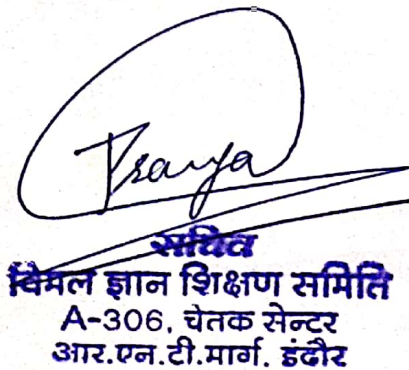 Pranya
सचिव
विमल ज्ञान शिक्षण समिति
A-306, चेतक सेन्टर
आर.एन.टी.मार्ग. इंदौर